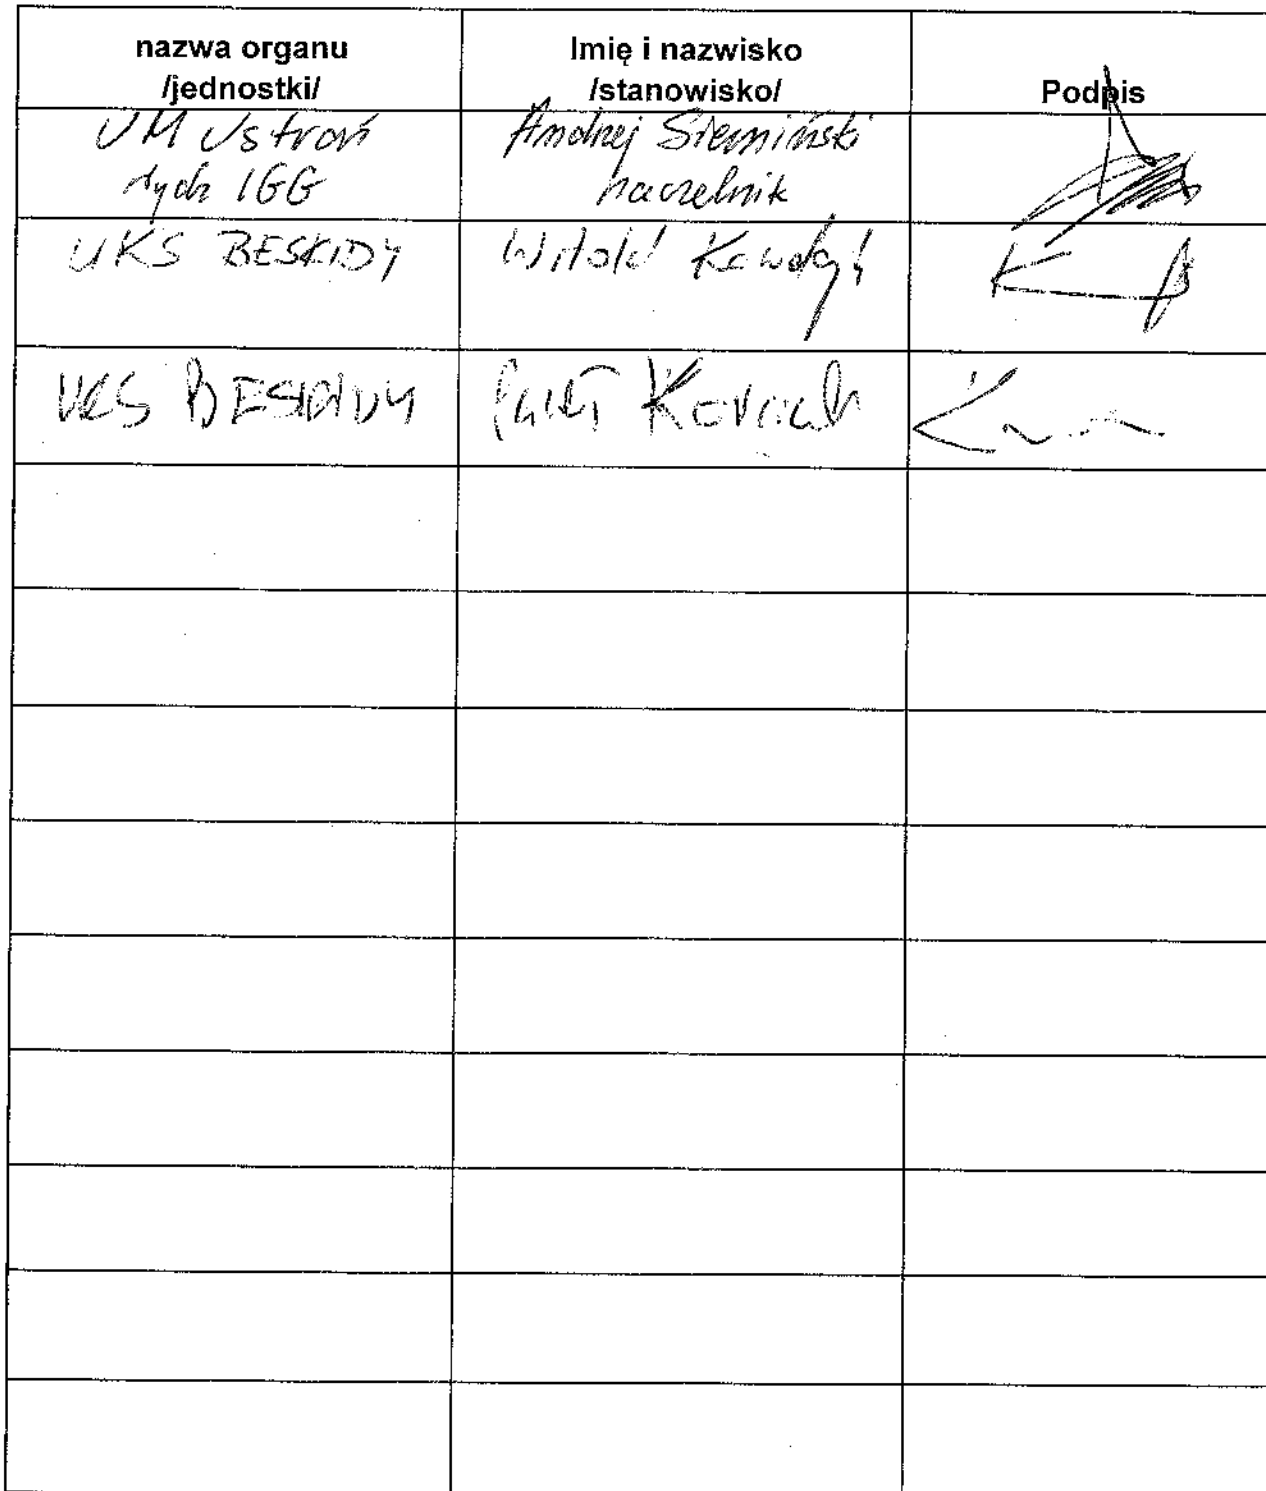 nazwa organu
/jednostki/
Imię i nazwisko
/stanowisko/
Podpis
UM Ustroń
IGG
Andrzej Siemiński
naczelnik
UKS BESKIDY
Witold
UKS BESKIDY
Paweł